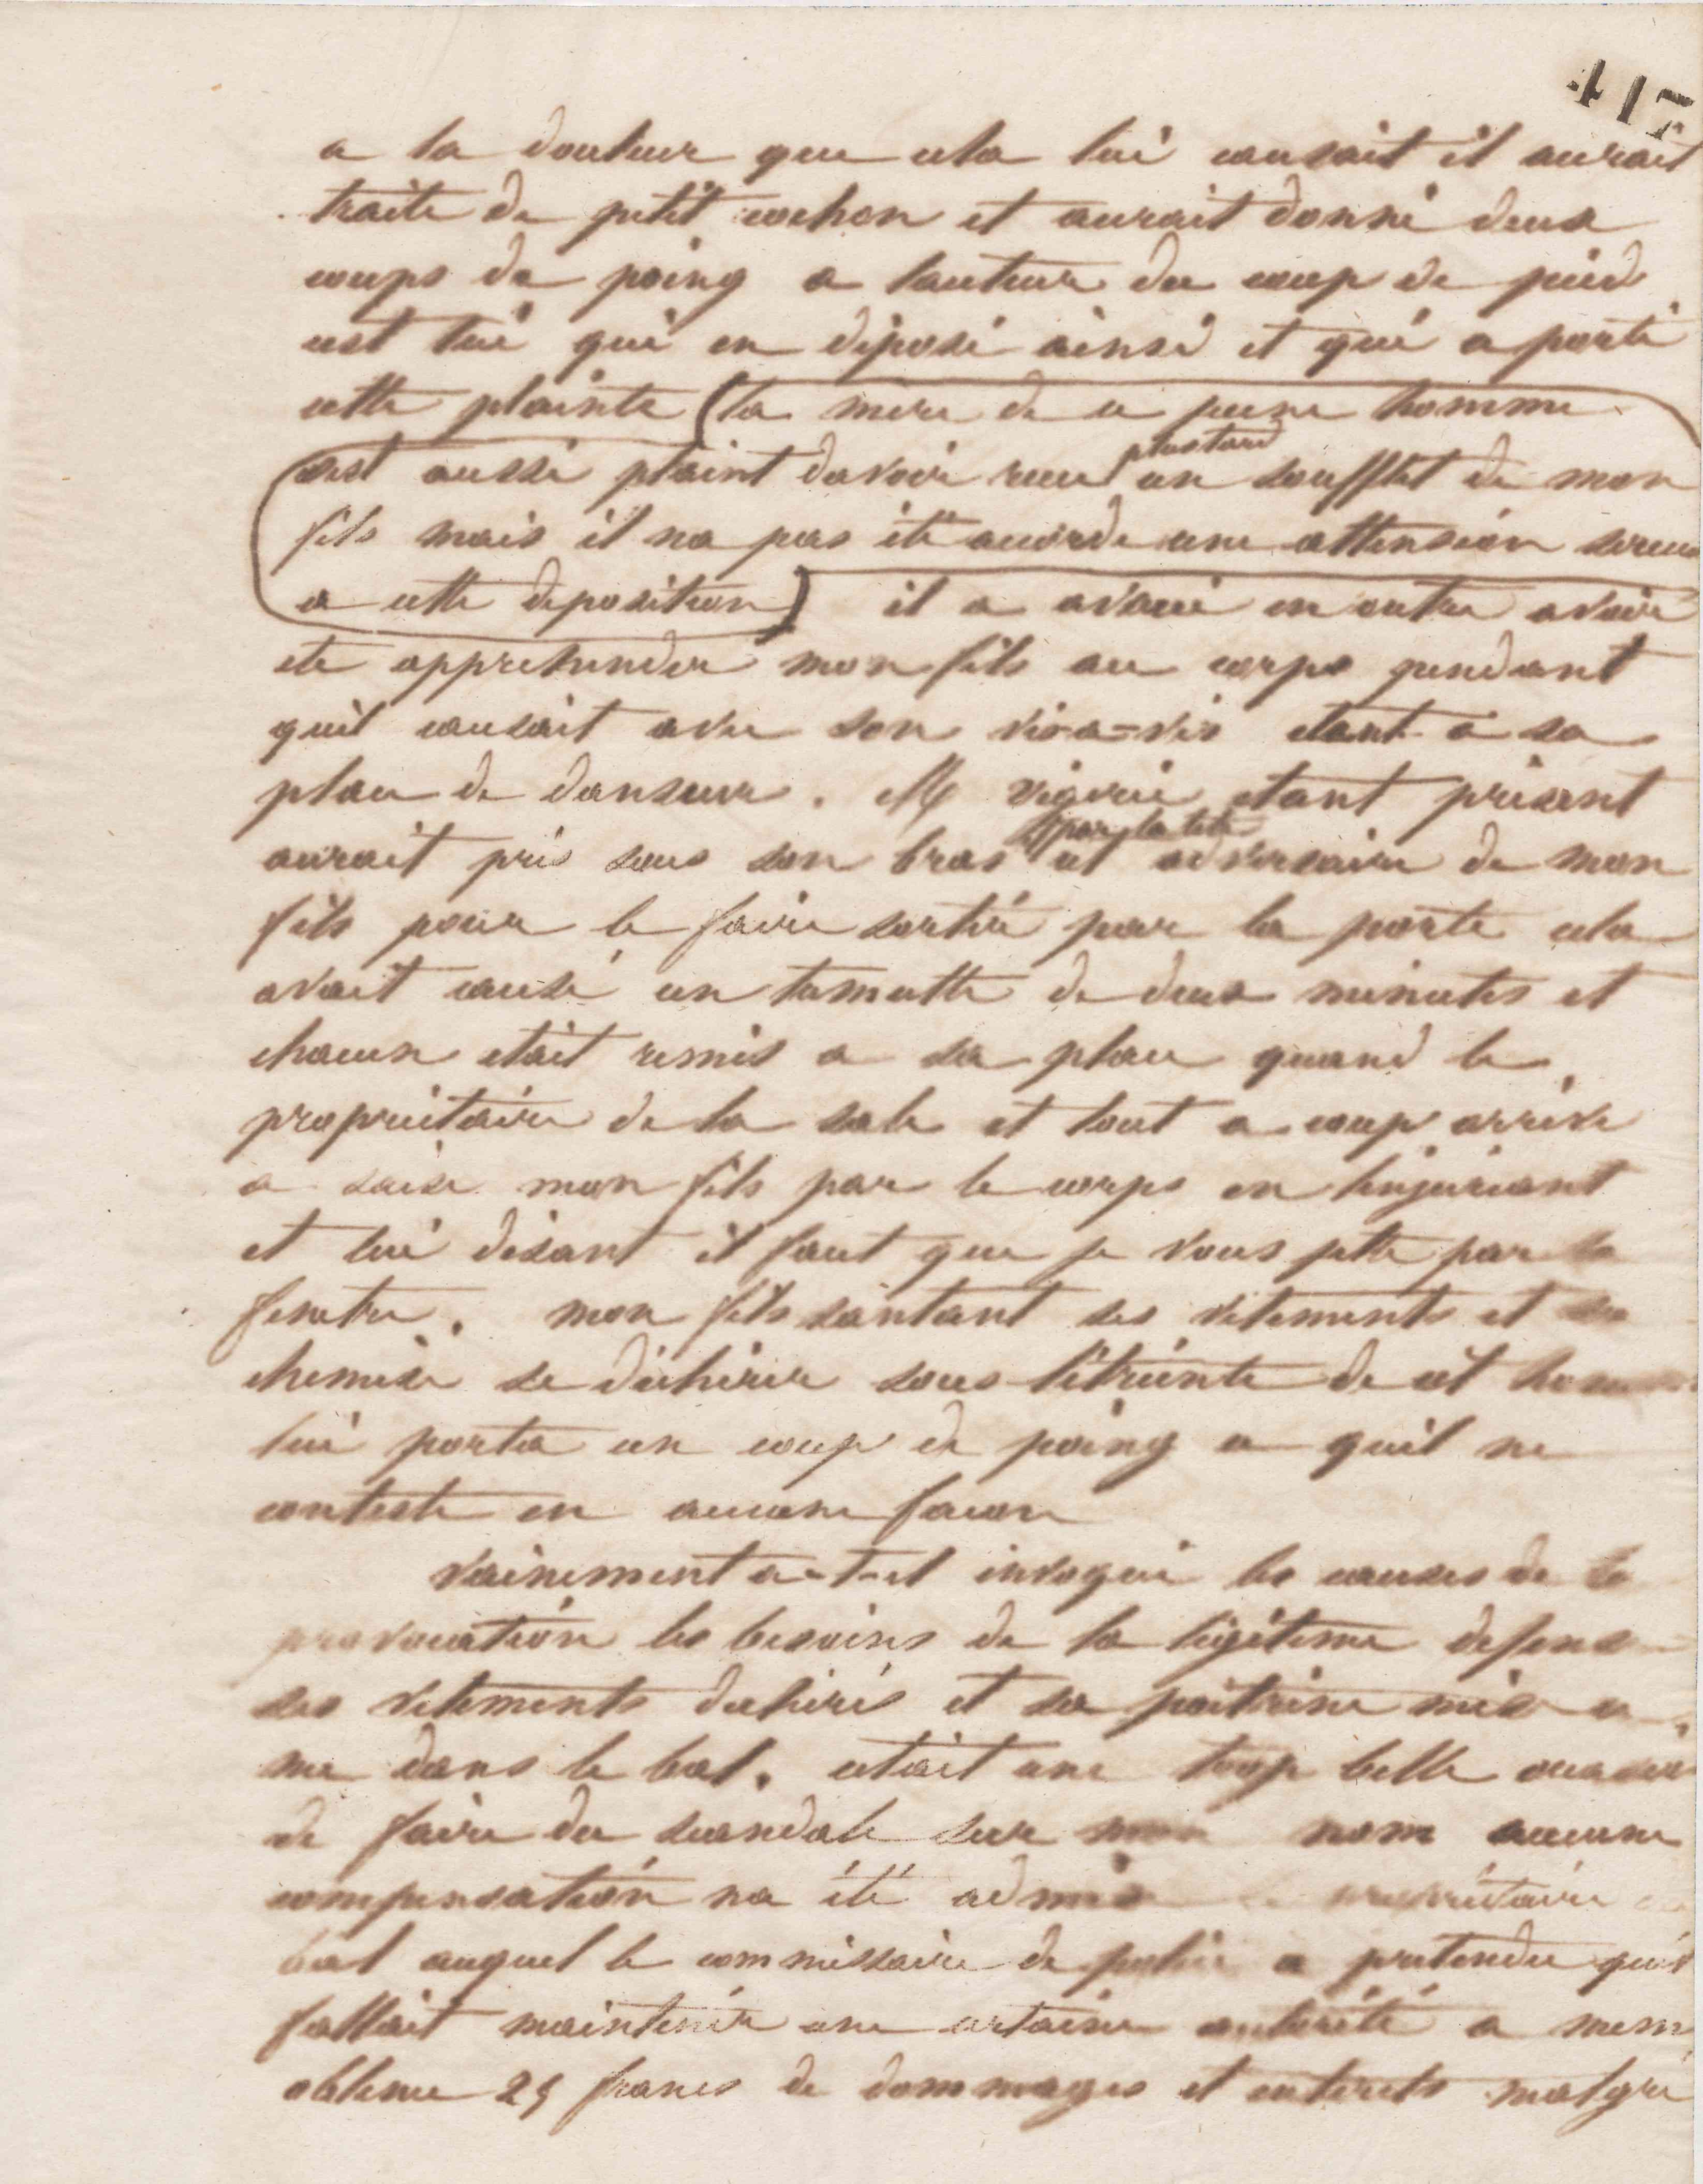 417
a la douleur que cela lui causait il aurait
traite de petit cochon et aurait donné deux
coups de poing a lauteur du coup de pied
cest lui qui en déposé ainsi et qui a porté
cette plainte (la mere de ce jeune homme
sest aussi plaint davoir recu plustard un soufflet de mon
fils mais il na pas été accorde une attension
a cette deposition) il a avoué en outre avoir
ete apprehender mon fils au corps pendant
quil causait avec son vis-a-vis etant a sa
place de danseur. M Vigerie etant présent
aurait pris sous son bras par la tete cet adversaire de mon
fils pour le faire sortir par la porte cela
avait causé un tumulte de deux minutes et
chacun était remis a sa place quand le
propriétaire de la sale et tout a coup arrive
a saisi mon fils par le corps en linjuriant
et lui disant il faut que je vous jette par la
fenetre. mon fils santant ses vetements et sa
chemise se déchirer sous létreinte de cet
lui porta un coup de poing ce quil ne
conteste en aucune facon
Vainement a-t-il invoqué les causes de la
provocation les besoins de la légitime defense
ses vetements dechirés et sa poitrine mise a
nu dans le bal. cetait une trop belle occasion
de faire du scandale sur mon nom aucune
compensation na été admise propriétaire
bal auquel le commissaire de police a pretendu quil
fallait maintenir une certaine autorité a meme
obtenu 25 francs de dommages et interets malgre